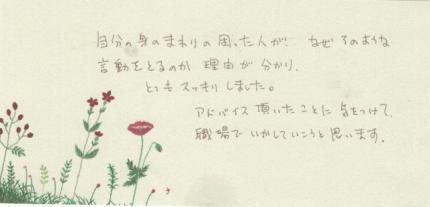 自分の身のまわりの困った人が、なぜそのような
言動をとるのか 理由が分かり、
とてもスッキリしました。
アドバイス頂いたことに気をつけて、
職場でいかしていこうと思います。